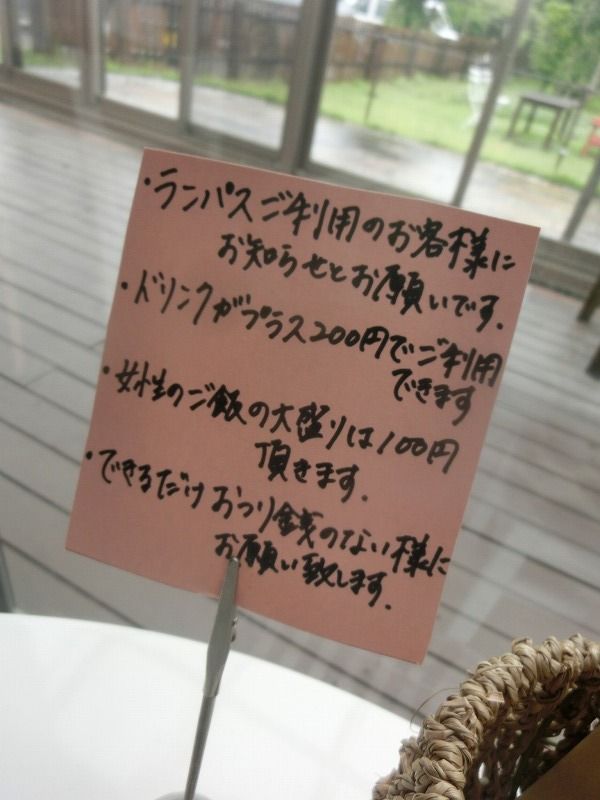 ・ランパスご利用のお客様に
お知らせとお願いです.
・ドリンクがプラス200円でご利用
できます
・女性のご飯の大盛りは100円
頂きます.
・できるだけおつり銭のない様に
お願い致します.